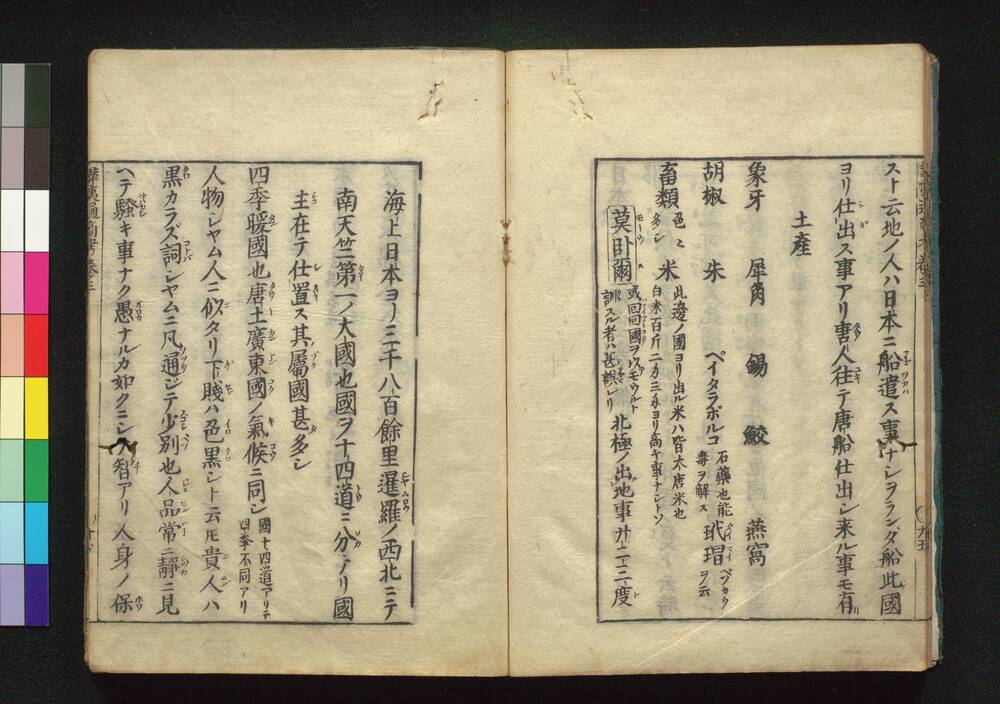 スト云地ノ人ハ日本ニ船遣ス事ナシヲランダ船此國
ヨリ仕出ス事アリ唐人往テ唐船仕出シ来ル事モ有
土產
象牙 犀角 錫 鮫 燕窩
胡椒 朱 ペイタラボルコ 石藥也能毒ヲ解ス 玳瑁 ベツカウヲ云
畜類 色々多シ 米 此邊ノ國ヨリ出ル米ハ皆木唐米也白米百斤二匁三分ヨリ高キ事ナシトソ
莫卧爾 或回回國ヲモウルト訓スル者ハ甚誤レリ 北極ノ出地事廿二三度
海上日本ヨリ三千八百餘里暹羅ノ西北ニテ
南天竺第一ノ大國也國ヲ十四道ニ分テリ國
主在テ仕置ス其屬國甚多シ
四季暖國也唐土廣東國ノ氣候ニ同シ 國十四道アリテ四季不同アリ
人物シヤム人ニ似タリ下賤ハ色黒シト云トモ貴人ハ
黒カラズ詞シヤムニ凡通ジテ少別也人品常ニ靜ニ見
ヘテ騷キ事ナク愚ナルカ如クニシ智アリ人身ノ保